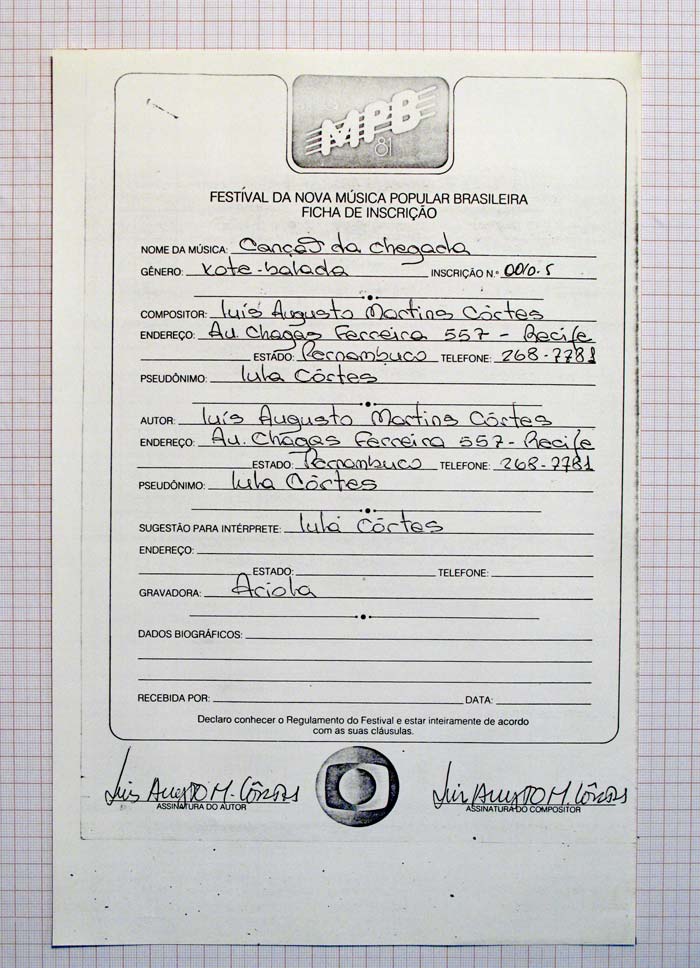 MPB
81
FESTIVAL DA NOVA MÚSICA POPULAR BRASILEIRA
FICHA DE INSCRIÇÃO
NOME DA MÚSICA: Canção da chegada
GÊNERO: xote-balada INSCRIÇÃO N.º 0010-5
COMPOSITOR: Luís Augusto Martins Côrtes
ENDEREÇO: Av. Chagas Ferreira 557 - Recife
ESTADO: Pernambuco TELEFONE: 268-7781
PSEUDÔNIMO: lula Côrtes
AUTOR: Luís Augusto Martins Côrtes
ENDEREÇO: Av. Chagas Ferreira 557 - Recife
ESTADO: Pernambuco TELEFONE: 268-7781
PSEUDÔNIMO: lula Côrtes
SUGESTÃO PARA INTÉRPRETE: lula Côrtes
ENDEREÇO:
ESTADO: TELEFONE:
GRAVADORA: Ariola
DADOS BIOGRÁFICOS:
RECEBIDA POR: DATA:
Declaro conhecer o Regulamento do Festival e estar inteiramente de acordo
com as suas cláusulas.
Luis Augusto M. Côrtes Luis Augusto M. Côrtes
ASSINATURA DO AUTOR ASSINATURA DO COMPOSITOR